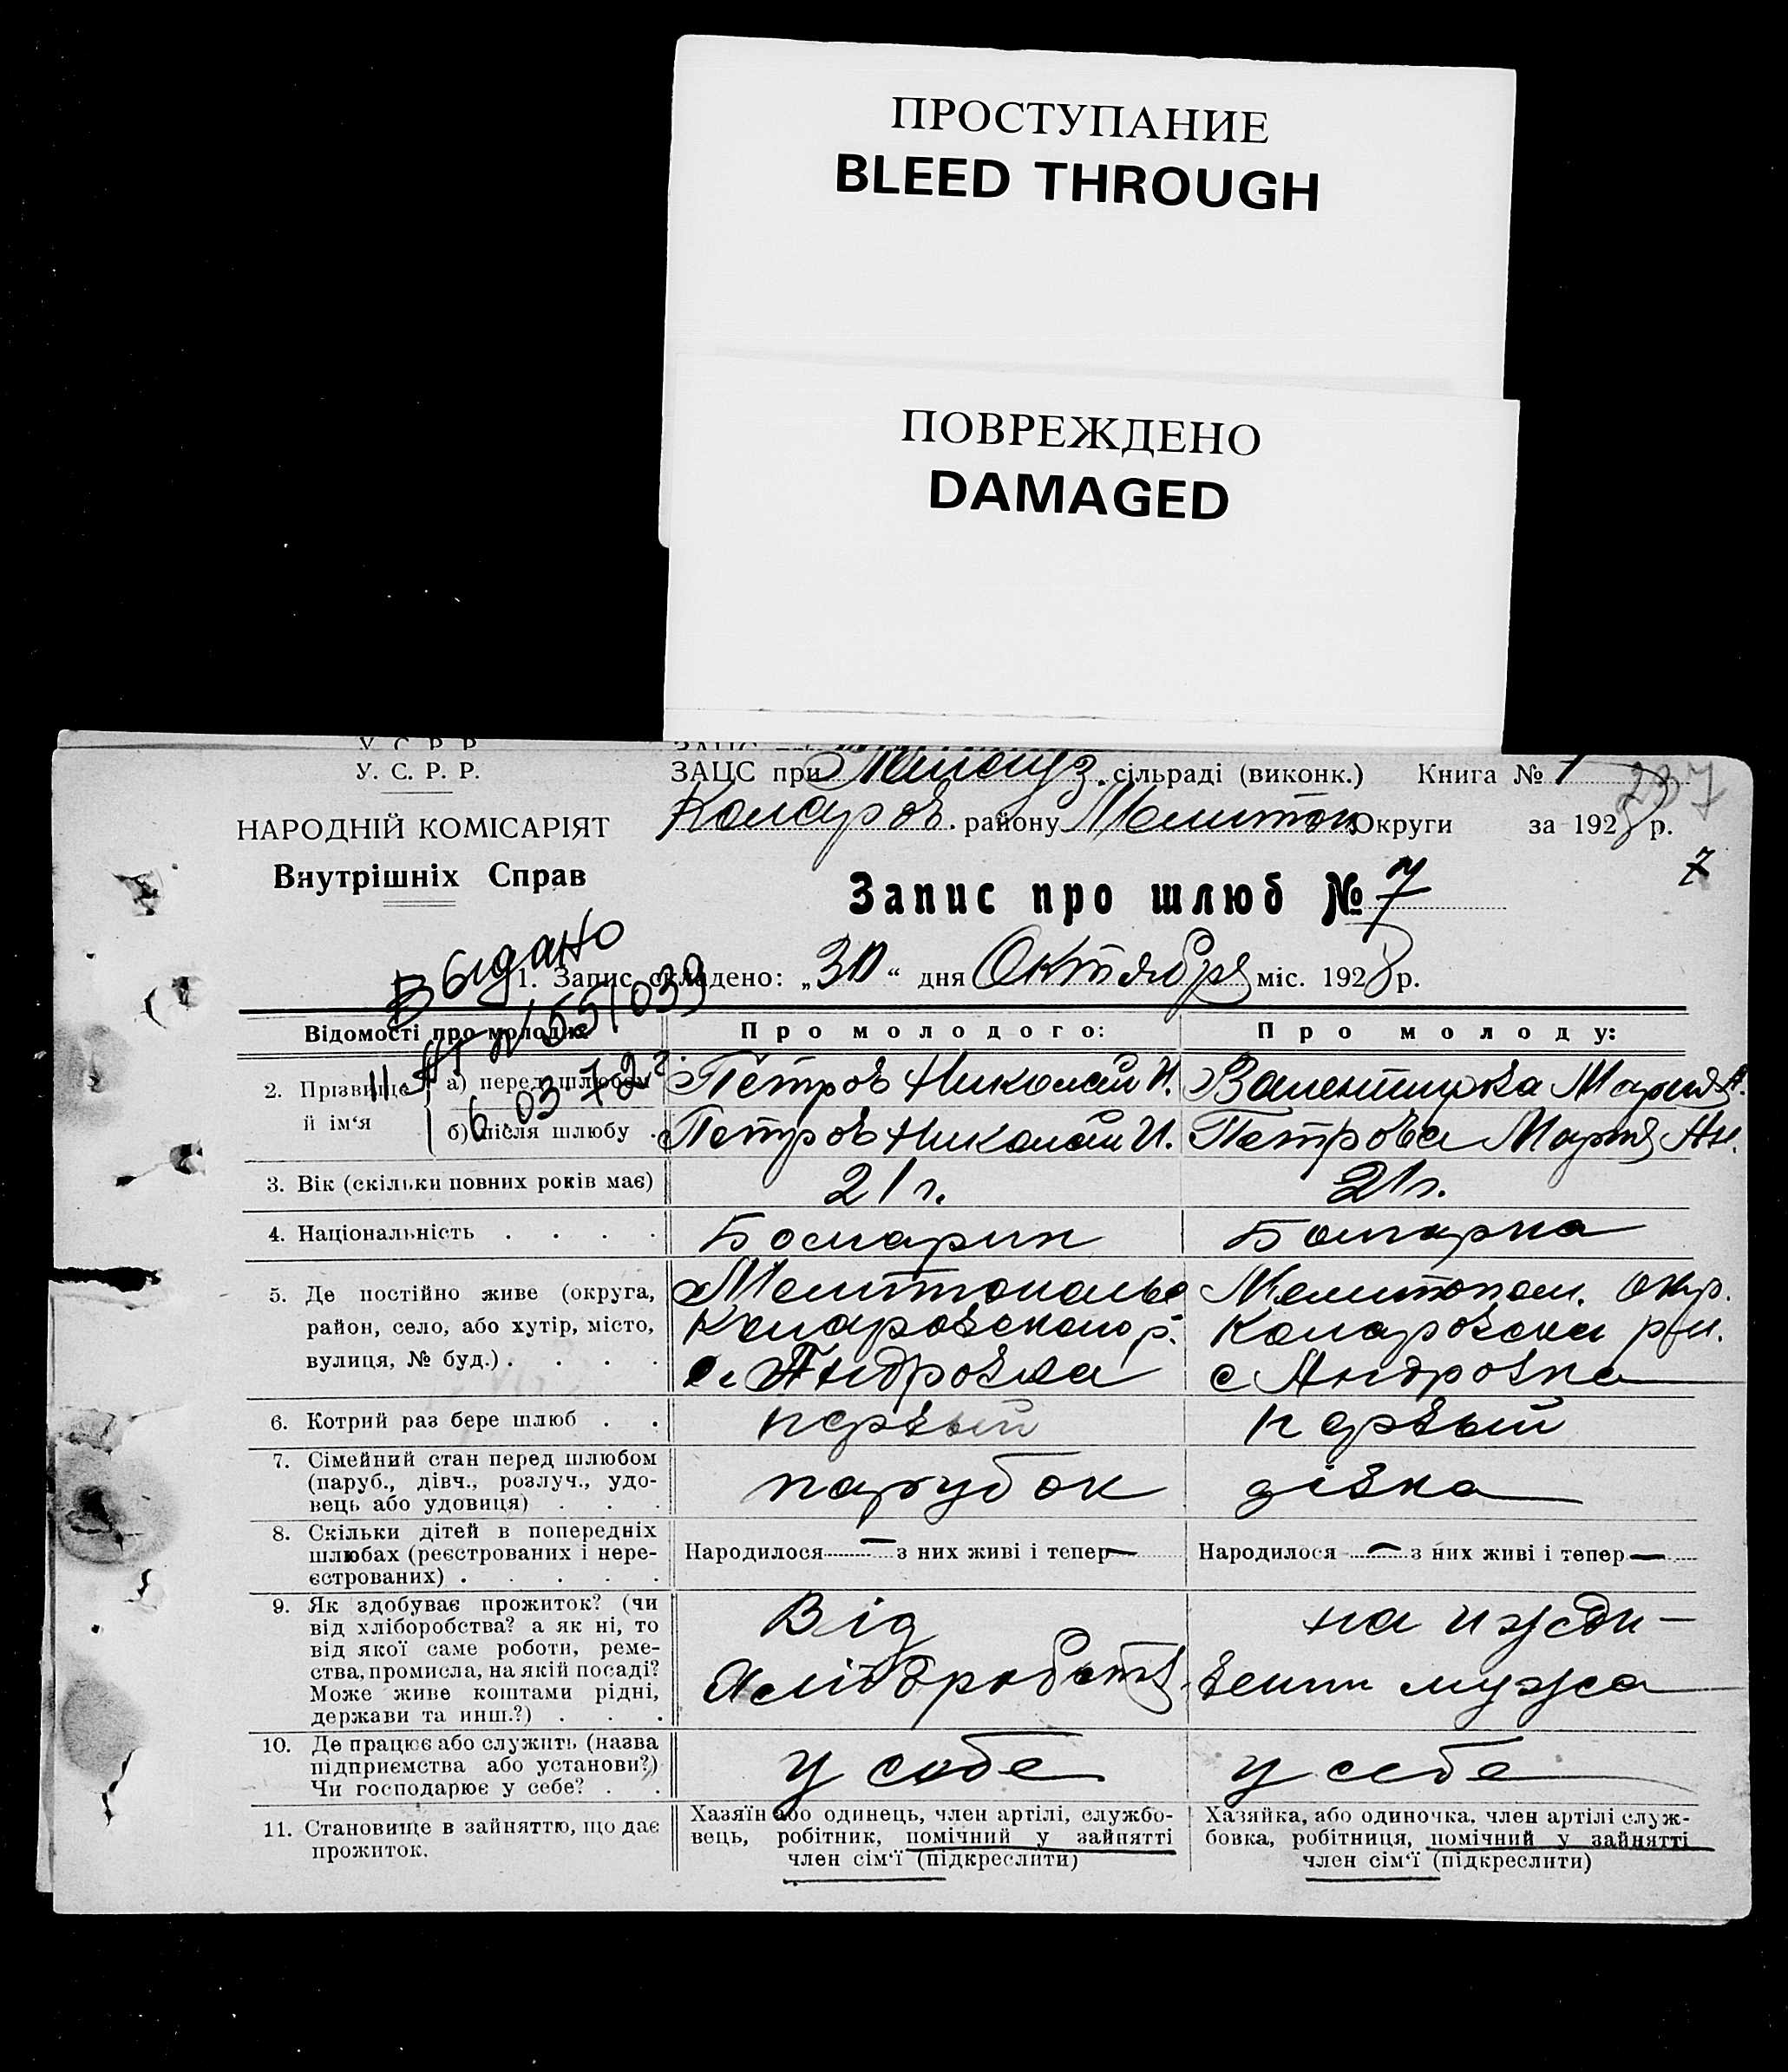 ПРОСТУПАНИЕ
BLEED THROUGH
ПОВРЕЖДЕНО
DAMAGED
У. С. Р. Р.
У. С. Р. Р.
НАРОДНІЙ КОМІСАРІЯТ
Внутрішніх Справ
ЗАЦС при сільраді (виконк.) Книга № 1
237
Коларов. району Мелитоп Округи за 1928 р.
7
Запис про шлюб № 7
Выдано
1. Запис складено: „30“ дня Октября міс. 1928 р.
II-АП № 551039
6.03.72г.
Відомості про молодих Про молодого: Про молоду:
2. Прізвище й ім‘я
а) перед шлюбом Петров Николай И. Валентирова Мария А.
б) після шлюбу Петров Николай И. Петрова Мария Ан.
3. Вік (скільки повних років має) 21 г. 21 г.
4. Національність Болгарин Болгарка
5. Де постійно живе (округа, район, село, або хутір, місто, вулиця, № буд.)
Мелитополье
Коларовского р.
с. Андровка
Мелитопол. окр.
Коларовска рн.
с Андровка
6. Котрий раз бере шлюб первый первый
7. Сімейний стан перед шлюбом
(паруб., дівч., розлуч., удо-
вець або удовиця)
парубок дівка
8. Скільки дітей в попередніх
шлюбах (реєстрованих і нере-
єстрованих)
Народилося — з них живі і тепер — Народилося — з них живі і тепер —
9. Як здобуває прожиток? (чи
від хліборобства? а як ні, то
від якої саме роботи, реме-
ства, промисла, на якій посаді?
Може живе коштами рідні,
держави та инш.?)
Від
хліборобств.
на ижди-
вении мужа
10. Де працює або служить (назва
підприємства або установи?)
Чи господарює у себе?
у себе у себе
11. Становище в зайняттю, що дає
прожиток.
Хазяїн або одинець, член артілі, службо-
вець, робітник, помічний у зайнятті
член сім‘ї (підкреслити)
Хазяйка, або одиночка, член артілі служ-
бовка, робітниця, помічний у зайнятті
член сім‘ї (підкреслити)